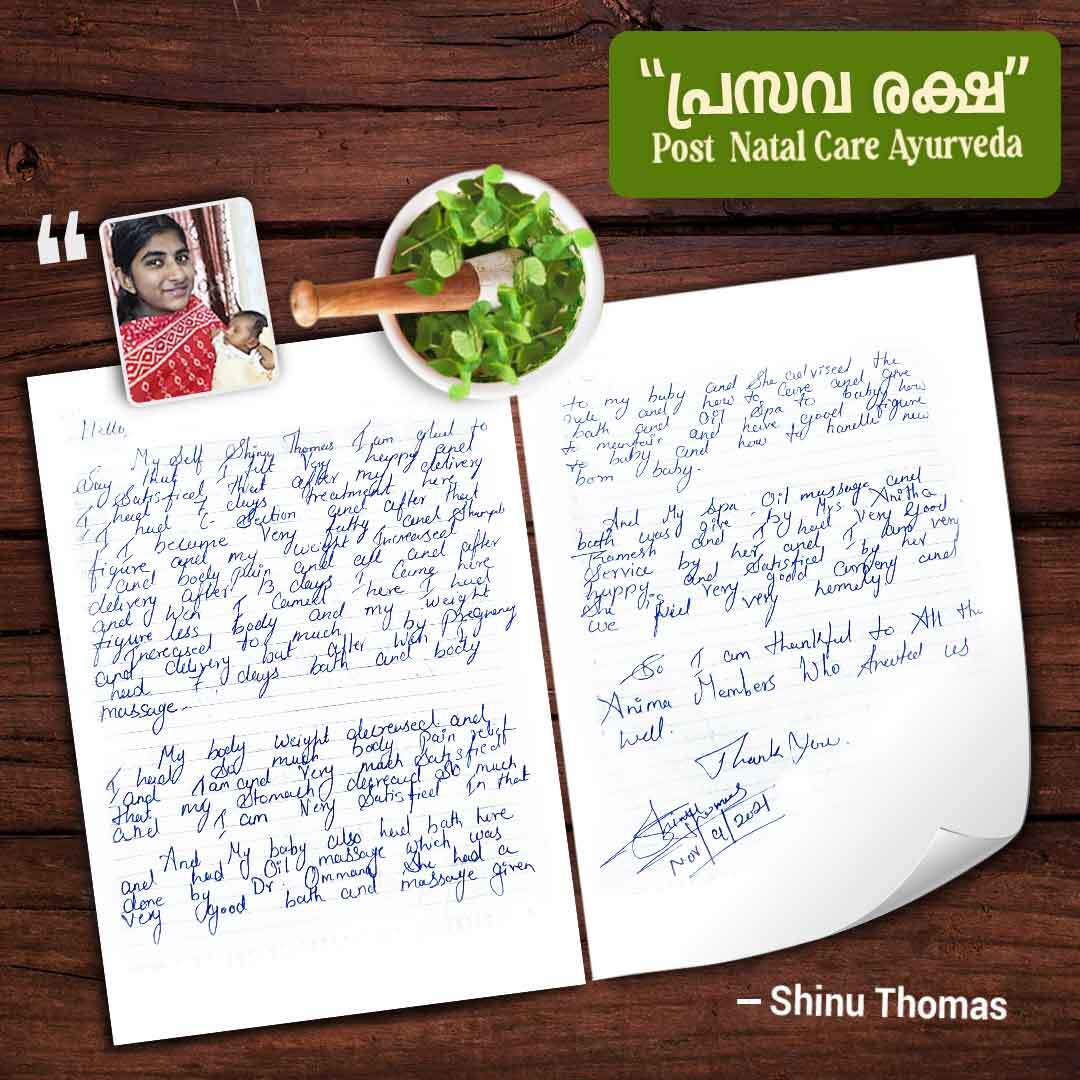 “പ്രസവ രക്ഷ”
Post Natal Care Ayurveda
“
Hello,
My self Shinu Thomas I am glad to
Say that I felt very happy and
Satisfied that after my delivery
I had 7 days treatment here
I had C-section and after that
I become very fatty and
figure and my weight Increased
and body pain and all and after
delivery after 13 days I came here
and I came here I had
figure less body and my weight
Increased to much by Pregnancy
and delivery but after I
had 7 days bath and body
massage.
My body weight decreased and
I had so much body Pain relief
and I am very much Satisfied
that my Stomach so much
and I am Very Satisfied In that
And My baby also had bath here
and had Oil massage which was
done by Dr. Ommana She had a
very good bath and massage given
to my baby and She adviced the
rule and how to care and give
bath and Oil Spa to baby how
to and have good figure
to baby and how to new
born baby.
And My Spa Oil massage and
bath was give by Mrs Anitha
and I had Very Good
Service by her and I am very
happy and Satisfied by her
very good and
we feel very homely
So I am thankful to All the
Anima Members Who treated us
well.
Thank You.
Shinu Thomas
Nov/9/2021
– Shinu Thomas